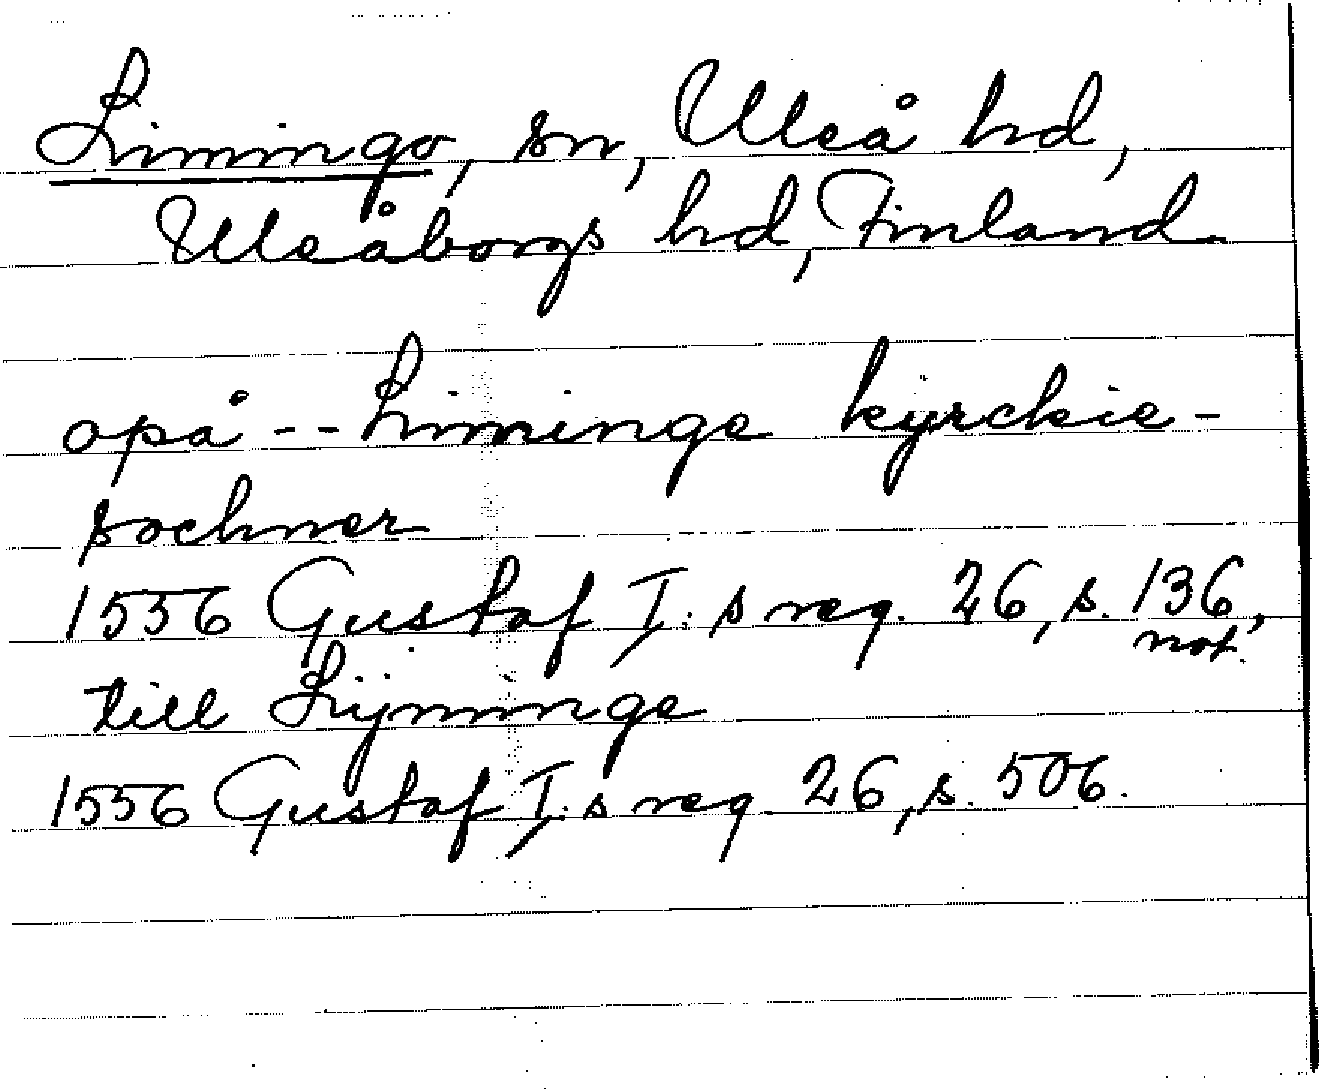 Limingo, sn, Uleå hd,
Uleåborgs hd, Finland.
opå -- Liminge kyrckie-
sochner
1556 Gustaf I:s reg. 26, s. 136,
not.
till Lijminge
1556 Gustaf I:s reg 26, s. 506.